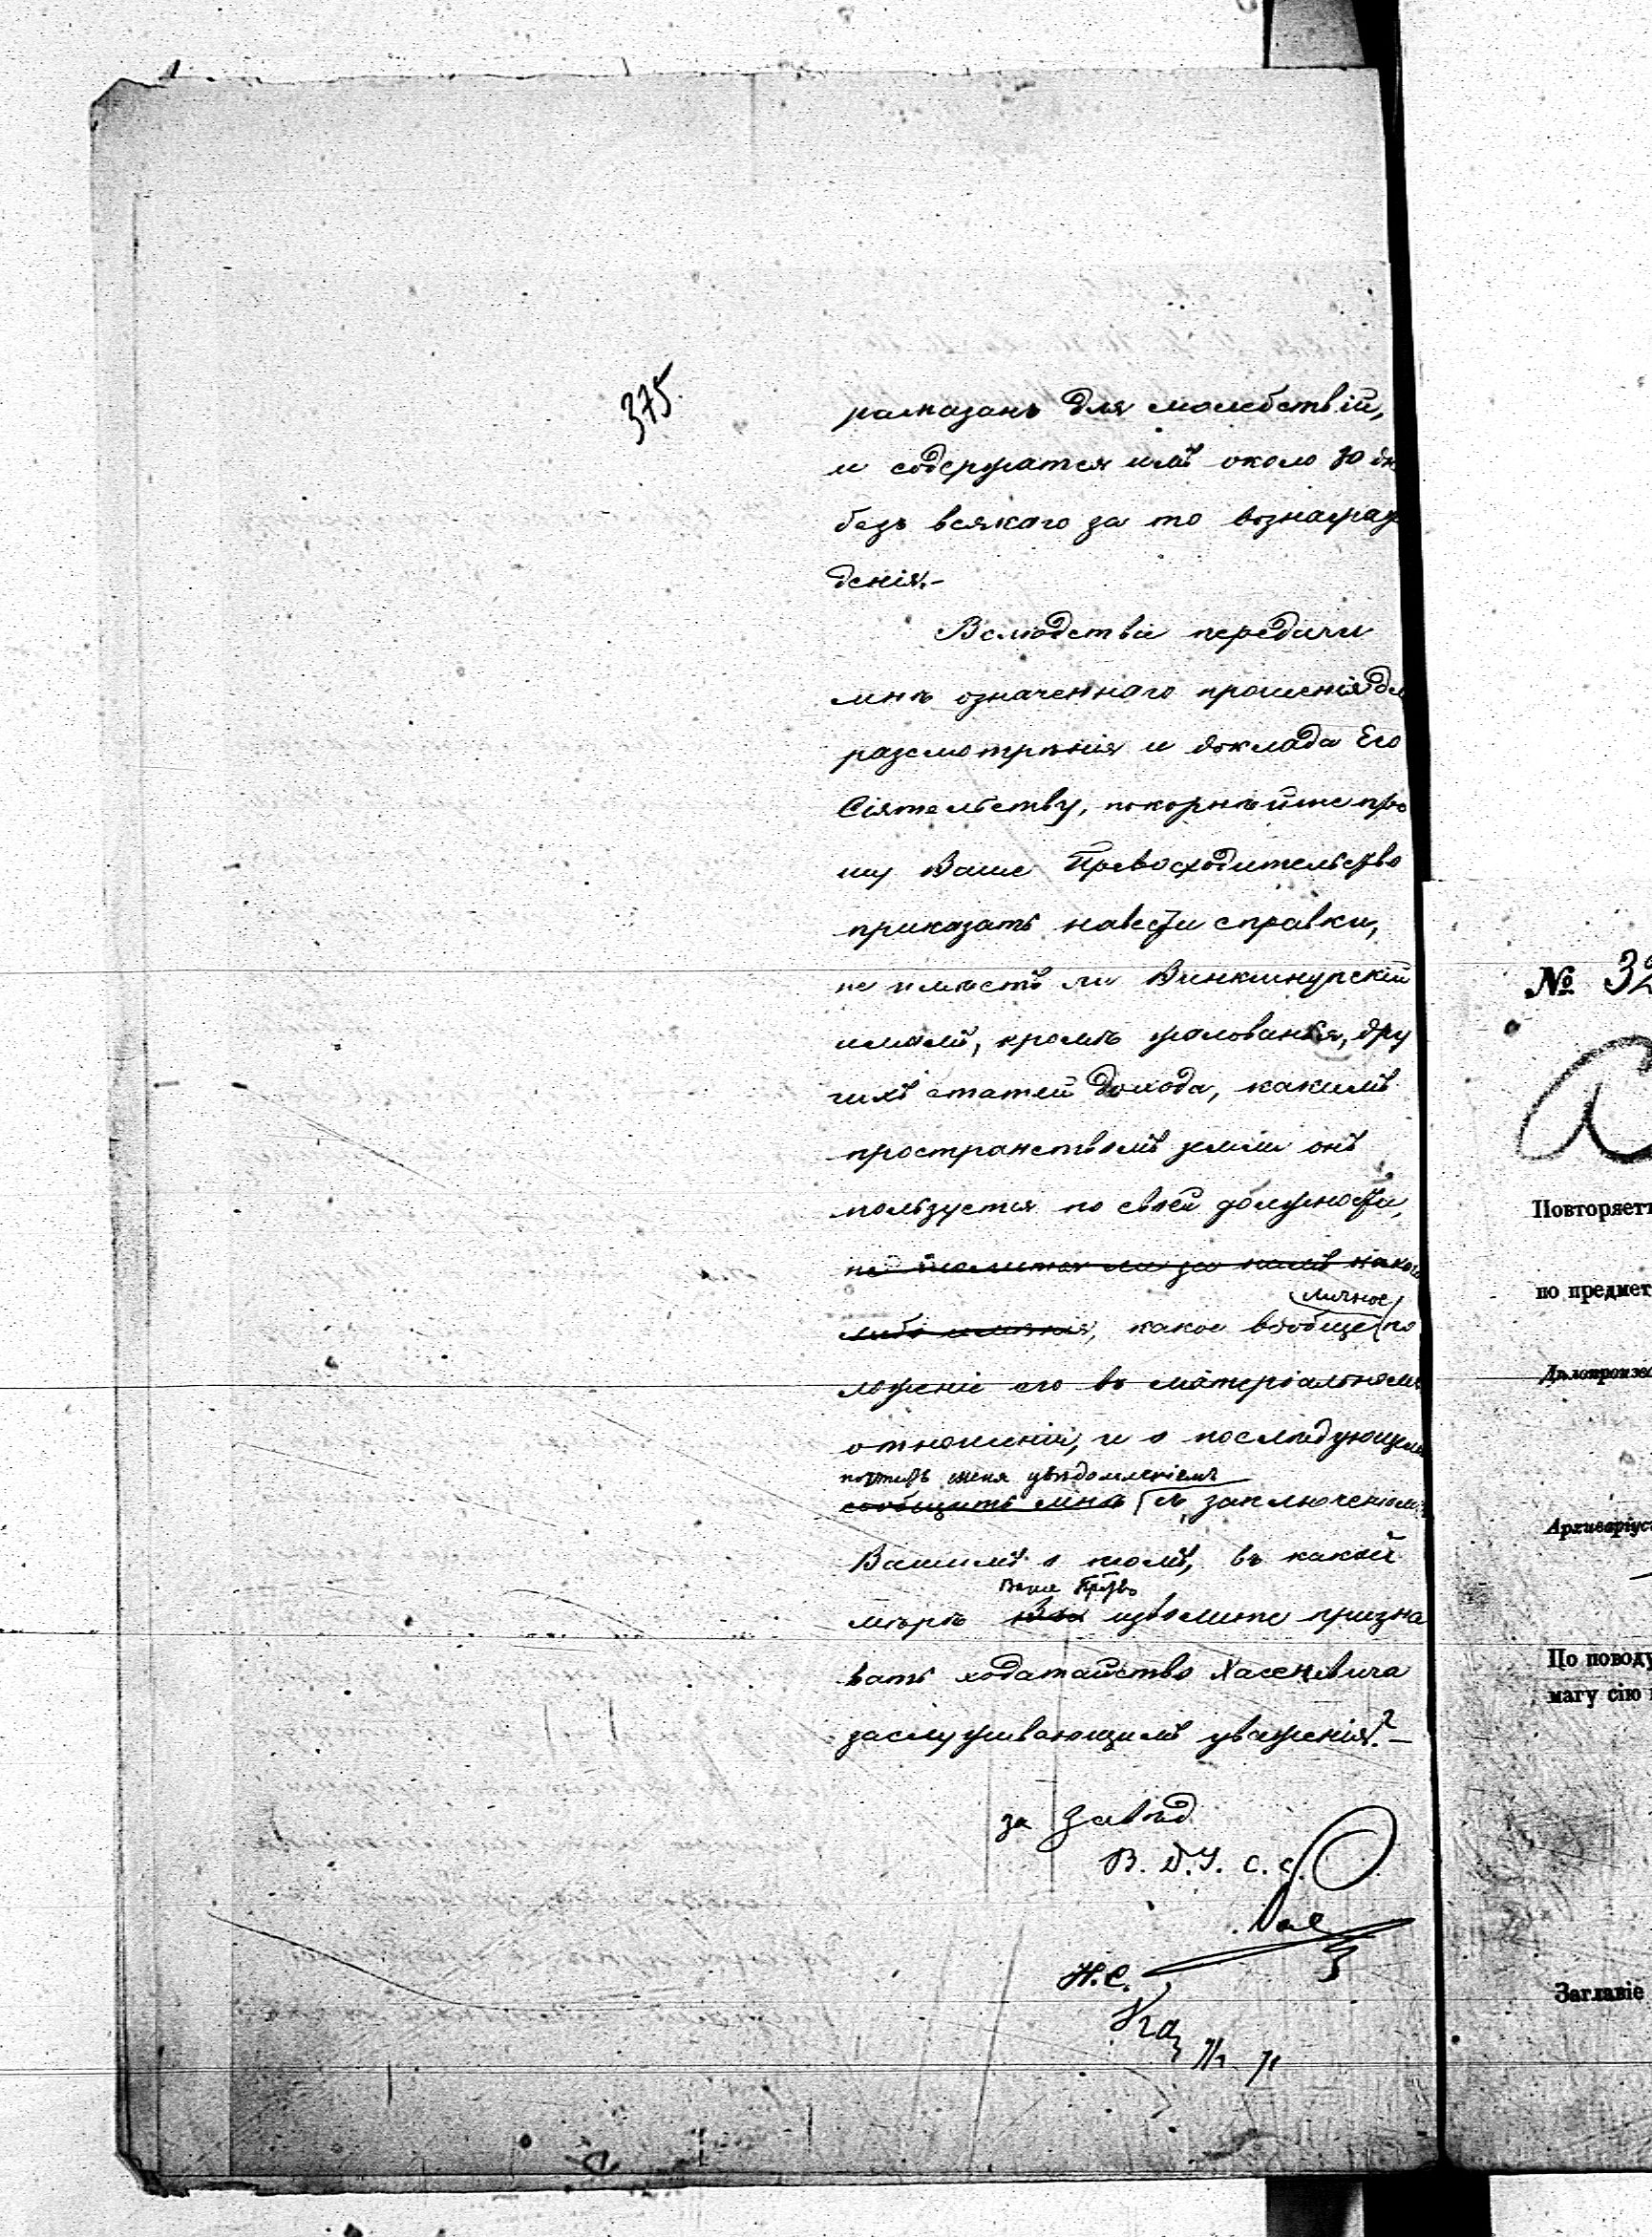 375.
рамазанъ для молебствій,
и содержатся имъ около 30 дн
безъ всякаго за то вознаграж
денія.-
Вслѣдствіе передачи
мнѣ означеннаго прошенія для
разсмотрѣнія и доклада Его
Сіятельству, покорнѣйше про
шу Ваше Превосходительство
приказать навести справки,
не имѣетъ ли
имамъ, кромѣ жалованья, дру
гихъ статей дохода, какимъ
пространствомъ земли онъ
пользуется по своей должности,
не имѣется ли за нимъ какого
личное
либо имѣнія, какое вообще по
ложеніе его въ матеріальномъ
отношеніи, и о послѣдующемъ
почтить меня увѣдомленіемъ
сообщить мнѣ съ заключеніемъ
Вашимъ о томъ, въ какой
Ваше Прев
мѣрѣ Вы изволите призна
вать ходатайство Хасеневича
заслуживающимъ уваженія?-
за Завѣд.
В. Д. У. с. с.
Н. С.
№ 32
Повторяет
по предмет
Дѣлопроизво
Архиваріус
По поводу
магу сію
Заглавіе